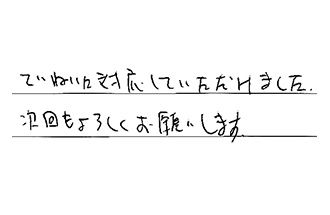 ていねいな対応していただけました.
次回もよろしくお願いします.